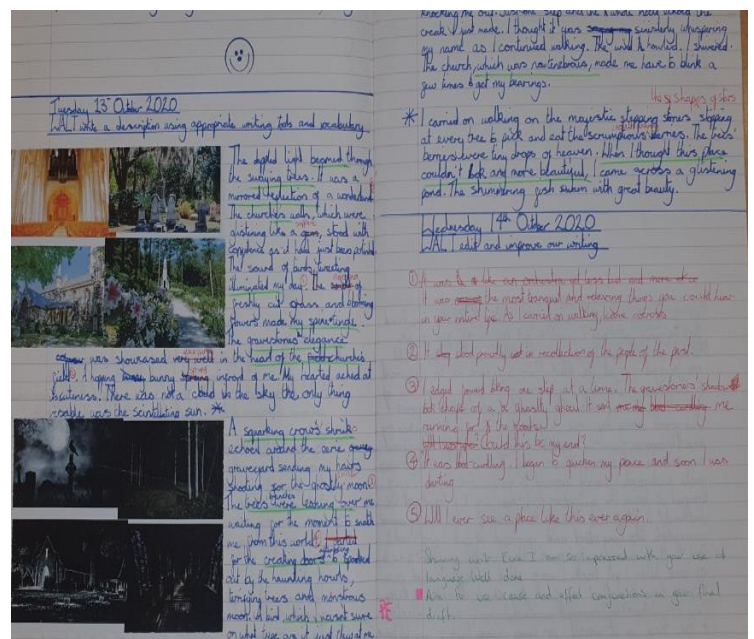 Tuesday 13th October 2020
WALT write a description using appropriate writing tools and vocabulary
The dappled light beamed through
the swaying trees. It was a
mirrored reflection of a wonderland.
The church's walls, which were
glistening like a gem, stood with
confidence as it had just been polished.
The sound of birds tweeting
illuminated my day. The
freshly cut grass and blooming
flowers made my spine tingle.
The gravestone's elegance
was showcased very well in the heart of the church's
field. A hoping bunny infront of me. My hearted ached at
cuteness. There was not a cloud in the sky the only thing
visable was the scintillating sun. *
A squarking crow's shriek
echoed around the eerie
graveyard sending my hairs
shooting for the ghostly moon.
The trees branches were leaning over me
waiting for the moment to snatch
me from this world. I
for the creaking doors
out by the haunting howls,
terrifying trees and monstrous
moon. A bird, which I wasnt sure
on what type
knocking me out. Just one step and the whole
creak I just made. I thought it was whispering
my name as I continued walking. The wind howled. I shivered.
The church, which was now tenebrous, made me have to blink a
few times to get my bearings.
shapes of stars
* I carried on walking on the majestic stepping stones stopping
at every tree to pick and eat the scrumptious berries. The trees'
berries were tiny drops of heaven. When I thought this place
couldn't look any more beautiful, I came across a glistening
pond. The shimmering fish swam with great beauty.
Wednesday 14th October 2020
WALT edit and improve our writing
① It was
It was the most tranquil and relaxing things you could hear
in your entire life. As I carried on walking,
② It stood proudly in recollection of the people of the past.
③ I edged forward taking one step at a time. The gravestones'
of a ghostly ghoul. It sent
running for
Could this be my end?
④ It was blood-curdling. I began to quicken my pace and soon I was
darting.
⑤ Will I ever see a place like this ever again.
I am so impressed with your use of
language. Well done.
Aim: To use cause and effect conjunctions in your final
draft.